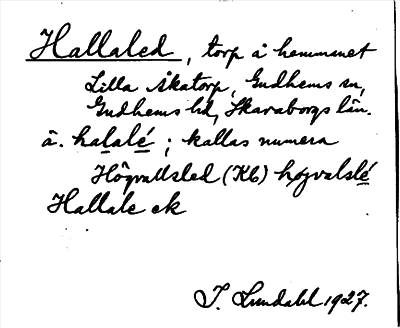 Hallaled, torp å hemmanet
Lilla Åkatorp, Gudhems sn,
Gudhems hd, Skaraborgs län.
å. halalé; kallas numera
Högvallsled (Kb) högvalslé
Hallale ek
I. Lundahl 1927.